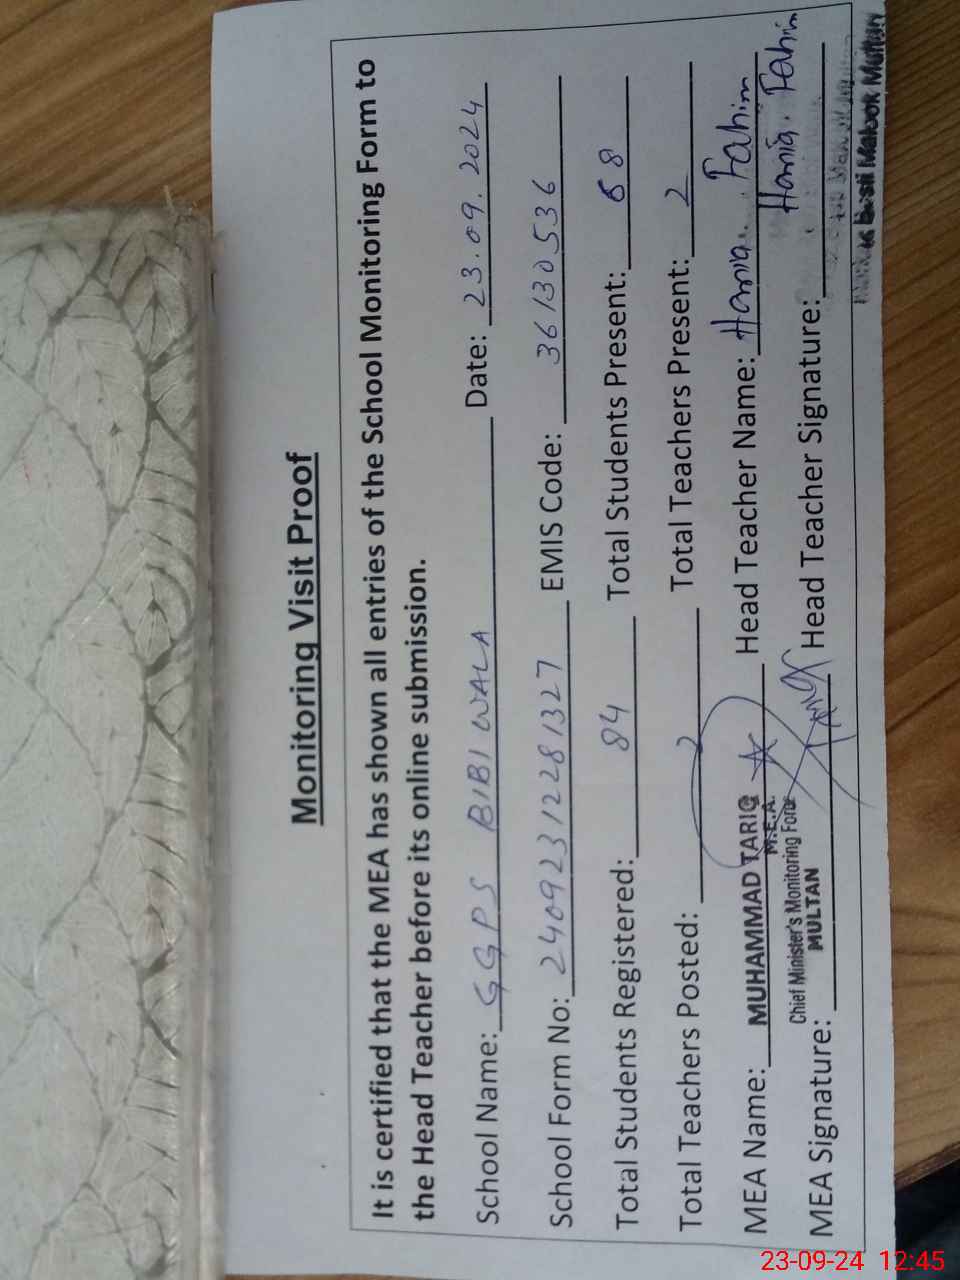 Monitoring Visit Proof
It is certified that the MEA has shown all entries of the School Monitoring Form to
the Head Teacher before its online submission.
School Name: GGPS BIBI WALA Date: 23.09.2024
School Form No: 24092312281327 EMIS Code: 36130536
Total Students Registered: 84 Total Students Present: 68
Total Teachers Posted: 2 Total Teachers Present: 2
MEA Name: MUHAMMAD TARIQ Head Teacher Name: Hania Fahim
M.E.A.
Chief Minister's Monitoring Force
MULTAN
MEA Signature: Head Teacher Signature: Hania Fahim
Basti Malook Multan
23-09-24 12:45